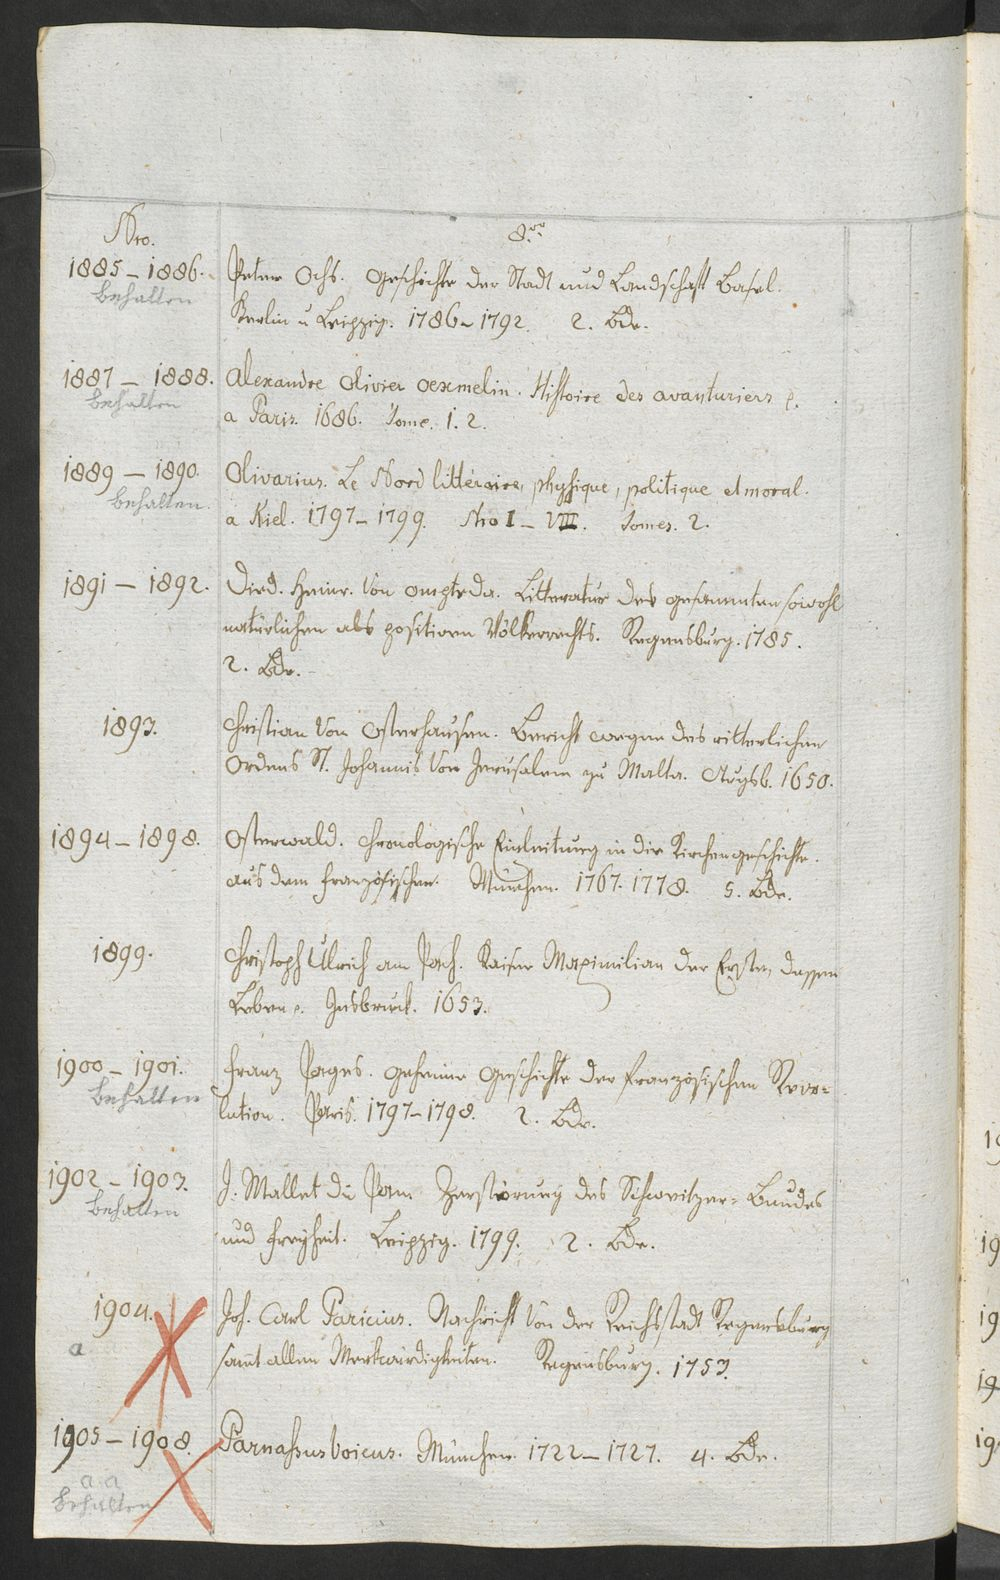 Nro. 8.vo
1885 – 1886. Peter Ochs. Geschichte der Stadt und Landschaft Basel.
behalten
Berlin u Leipzig. 1786 – 1792. 2. Bde.
1887 – 1888. Alexandre Olivier Oexmelin. Histoire des avanturiers p.
behalten
a Paris. 1686. Tome. 1. 2.
1889 – 1890. Olivarius. Le Nord littéraire, physique, politique et moral.
behalten.
a Kiel. 1797 – 1799. Nro I – VIII. Tomes. 2.
1891 – 1892. Died. Heinr. von Ompteda. Litteratur des gesammten sowohl
natürlichen als positiven Völkerrechts. Regensburg. 1785.
2. Bde.
1893. Christian von Osterhausen. Bericht wegen des ritterlichen
Ordens St. Johannis von Jerusalem zu Malta. Augsb. 1650.
1894 – 1898. Osterwald. Chronologische Einleitung in die Kirchengeschichte.
aus dem französischen. München. 1767. 1778. 5. Bde.
1899. Christoph Ulrich am Pach. Kaiser Maximilian der Erste, dessen
Leben p. Insbruck. 1653.
1900 – 1901. Franz Pages. geheime Geschichte der französischen Revo=
behalten
lution. Paris. 1797 – 1798. 2. Bde.
1902 – 1903. J. Mallet du Pam Zerstörung des Schweitzer=Bundes
behalten
und Freyheit. Leipzig. 1799. 2. Bde.
1904. Joh. Carl Paricius. Nachricht von der Reichsstadt Regensburg
a
samt allen Merkwürdigkeiten. Regensburg. 1753.
1905 – 1908. Parnassus boicus. München. 1722 – 1727. 4. Bde.
a a
behalten